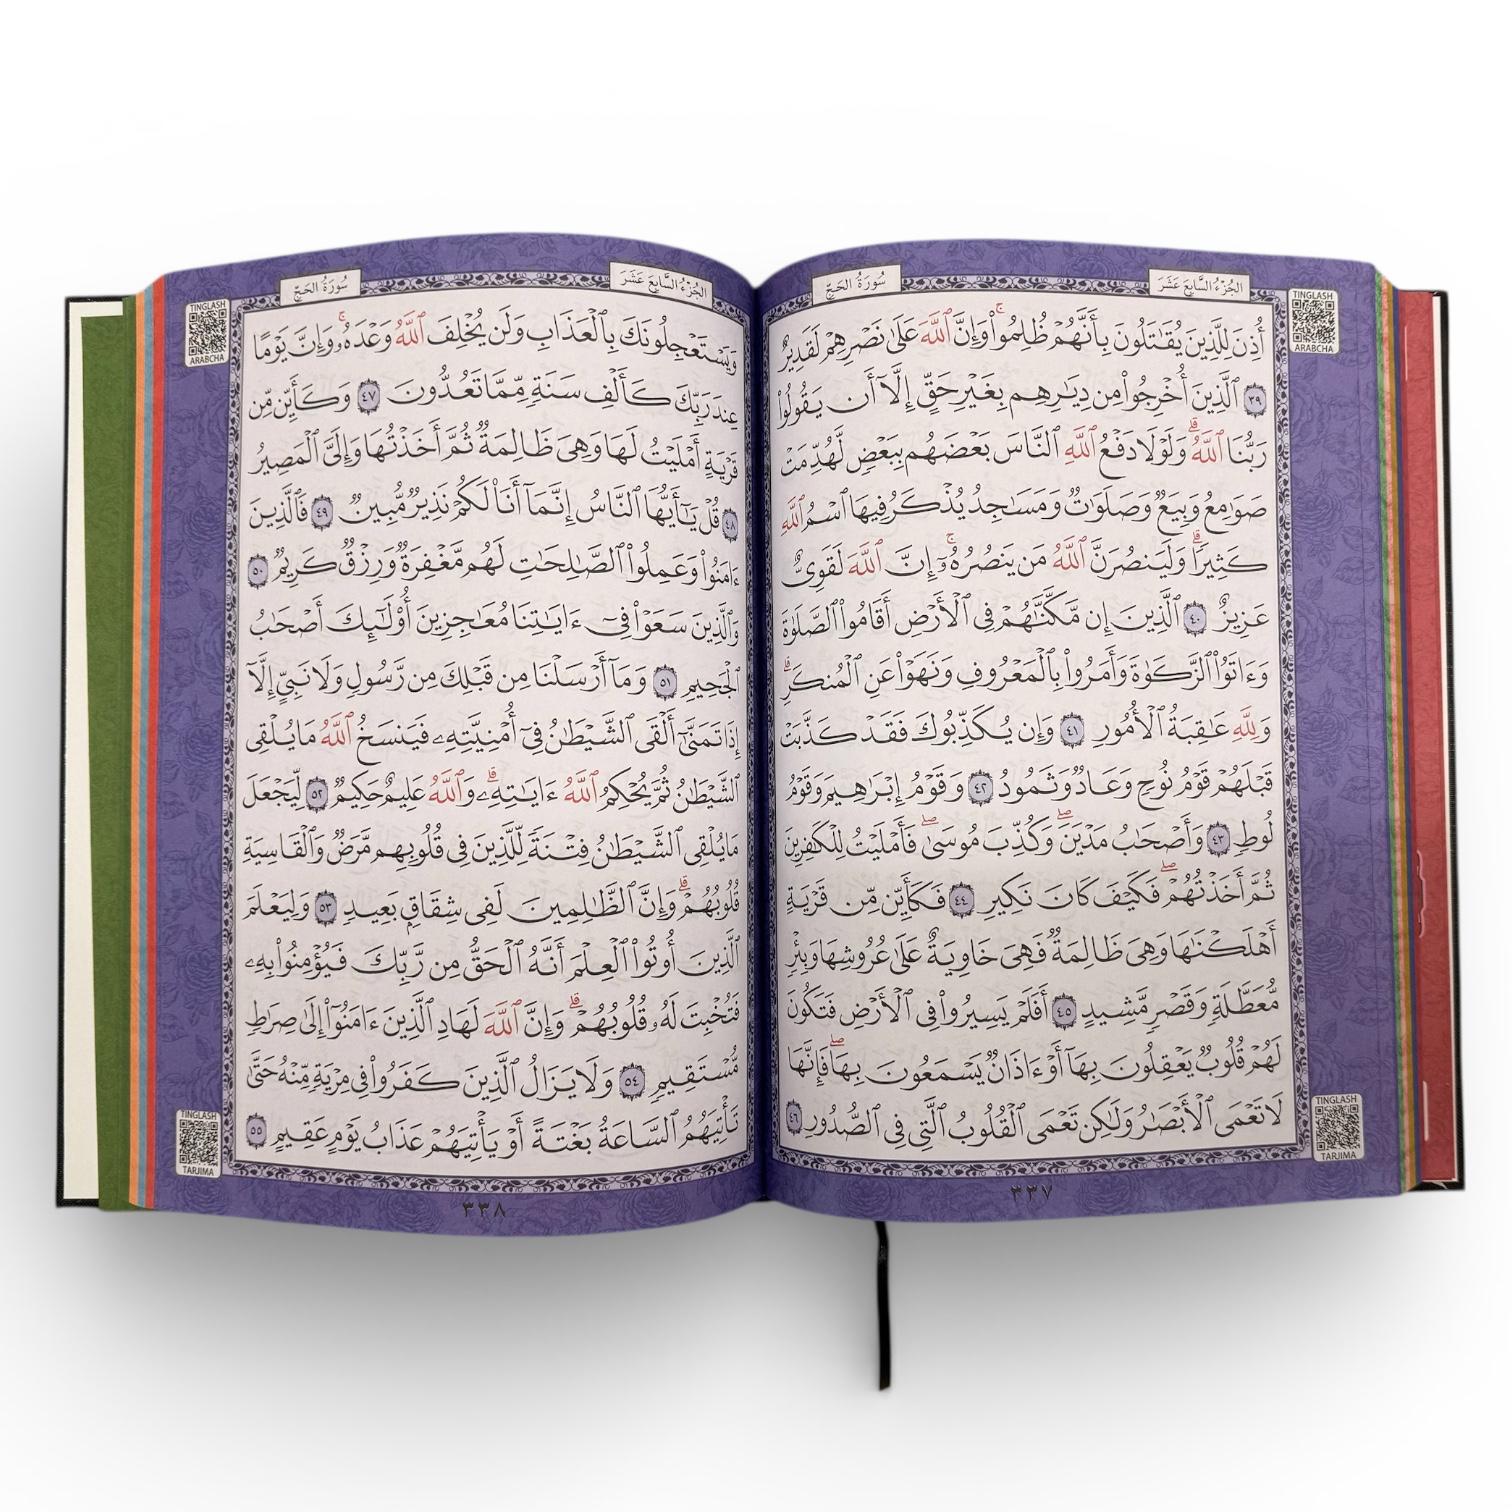 الجُزْءُ السَّابِعَ عَشَرَ
سُورَةُ الحَجِّ
TINGLASH
ARABCHA
أُذِنَ لِلَّذِينَ يُقَٰتَلُونَ بِأَنَّهُمْ ظُلِمُوا۟ ۚ وَإِنَّ ٱللَّهَ عَلَىٰ نَصْرِهِمْ لَقَدِيرٌ
٣٩ ٱلَّذِينَ أُخْرِجُوا۟ مِن دِيَٰرِهِم بِغَيْرِ حَقٍّ إِلَّآ أَن يَقُولُوا۟
رَبُّنَا ٱللَّهُ ۗ وَلَوْلَا دَفْعُ ٱللَّهِ ٱلنَّاسَ بَعْضَهُم بِبَعْضٍ لَّهُدِّمَتْ
صَوَٰمِعُ وَبِيَعٌ وَصَلَوَٰتٌ وَمَسَٰجِدُ يُذْكَرُ فِيهَا ٱسْمُ ٱللَّهِ
كَثِيرًا ۗ وَلَيَنصُرَنَّ ٱللَّهُ مَن يَنصُرُهُۥٓ ۚ إِنَّ ٱللَّهَ لَقَوِىٌّ
عَزِيزٌ ٤٠ ٱلَّذِينَ إِن مَّكَّنَّٰهُمْ فِى ٱلْأَرْضِ أَقَامُوا۟ ٱلصَّلَوٰةَ
وَءَاتَوُا۟ ٱلزَّكَوٰةَ وَأَمَرُوا۟ بِٱلْمَعْرُوفِ وَنَهَوْا۟ عَنِ ٱلْمُنكَرِ ۗ
وَلِلَّهِ عَٰقِبَةُ ٱلْأُمُورِ ٤١ وَإِن يُكَذِّبُوكَ فَقَدْ كَذَّبَتْ
قَبْلَهُمْ قَوْمُ نُوحٍ وَعَادٌ وَثَمُودُ ٤٢ وَقَوْمُ إِبْرَٰهِيمَ وَقَوْمُ
لُوطٍ ٤٣ وَأَصْحَٰبُ مَدْيَنَ ۖ وَكُذِّبَ مُوسَىٰ ۖ فَأَمْلَيْتُ لِلْكَٰفِرِينَ
ثُمَّ أَخَذْتُهُمْ ۖ فَكَيْفَ كَانَ نَكِيرِ ٤٤ فَكَأَيِّن مِّن قَرْيَةٍ
أَهْلَكْنَٰهَا وَهِىَ ظَالِمَةٌ فَهِىَ خَاوِيَةٌ عَلَىٰ عُرُوشِهَا وَبِئْرٍ
مُّعَطَّلَةٍ وَقَصْرٍ مَّشِيدٍ ٤٥ أَفَلَمْ يَسِيرُوا۟ فِى ٱلْأَرْضِ فَتَكُونَ
لَهُمْ قُلُوبٌ يَعْقِلُونَ بِهَآ أَوْ ءَاذَانٌ يَسْمَعُونَ بِهَا ۖ فَإِنَّهَا
لَا تَعْمَى ٱلْأَبْصَٰرُ وَلَٰكِن تَعْمَى ٱلْقُلُوبُ ٱلَّتِى فِى ٱلصُّدُورِ ٤٦
TINGLASH
TARJIMA
٣٣٧
الجُزْءُ السَّابِعَ عَشَرَ
سُورَةُ الحَجِّ
TINGLASH
ARABCHA
وَيَسْتَعْجِلُونَكَ بِٱلْعَذَابِ وَلَن يُخْلِفَ ٱللَّهُ وَعْدَهُۥ ۚ وَإِنَّ يَوْمًا
عِندَ رَبِّكَ كَأَلْفِ سَنَةٍ مِّمَّا تَعُدُّونَ ٤٧ وَكَأَيِّن مِّن
قَرْيَةٍ أَمْلَيْتُ لَهَا وَهِىَ ظَالِمَةٌ ثُمَّ أَخَذْتُهَا وَإِلَىَّ ٱلْمَصِيرُ
٤٨ قُلْ يَٰٓأَيُّهَا ٱلنَّاسُ إِنَّمَآ أَنَا۠ لَكُمْ نَذِيرٌ مُّبِينٌ ٤٩ فَٱلَّذِينَ
ءَامَنُوا۟ وَعَمِلُوا۟ ٱلصَّٰلِحَٰتِ لَهُم مَّغْفِرَةٌ وَرِزْقٌ كَرِيمٌ ٥٠
وَٱلَّذِينَ سَعَوْا۟ فِىٓ ءَايَٰتِنَا مُعَٰجِزِينَ أُو۟لَٰٓئِكَ أَصْحَٰبُ
ٱلْجَحِيمِ ٥١ وَمَآ أَرْسَلْنَا مِن قَبْلِكَ مِن رَّسُولٍ وَلَا نَبِىٍّ إِلَّآ
إِذَا تَمَنَّىٰٓ أَلْقَى ٱلشَّيْطَٰنُ فِىٓ أُمْنِيَّتِهِۦ فَيَنسَخُ ٱللَّهُ مَا يُلْقِى
ٱلشَّيْطَٰنُ ثُمَّ يُحْكِمُ ٱللَّهُ ءَايَٰتِهِۦ ۗ وَٱللَّهُ عَلِيمٌ حَكِيمٌ ٥٢ لِّيَجْعَلَ
مَا يُلْقِى ٱلشَّيْطَٰنُ فِتْنَةً لِّلَّذِينَ فِى قُلُوبِهِم مَّرَضٌ وَٱلْقَاسِيَةِ
قُلُوبُهُمْ ۗ وَإِنَّ ٱلظَّٰلِمِينَ لَفِى شِقَاقٍۭ بَعِيدٍ ٥٣ وَلِيَعْلَمَ
ٱلَّذِينَ أُوتُوا۟ ٱلْعِلْمَ أَنَّهُ ٱلْحَقُّ مِن رَّبِّكَ فَيُؤْمِنُوا۟ بِهِۦ
فَتُخْبِتَ لَهُۥ قُلُوبُهُمْ ۗ وَإِنَّ ٱللَّهَ لَهَادِ ٱلَّذِينَ ءَامَنُوٓا۟ إِلَىٰ صِرَٰطٍ
مُّسْتَقِيمٍ ٥٤ وَلَا يَزَالُ ٱلَّذِينَ كَفَرُوا۟ فِى مِرْيَةٍ مِّنْهُ حَتَّىٰ
تَأْتِيَهُمُ ٱلسَّاعَةُ بَغْتَةً أَوْ يَأْتِيَهُمْ عَذَابُ يَوْمٍ عَقِيمٍ ٥٥
TINGLASH
TARJIMA
٣٣٨